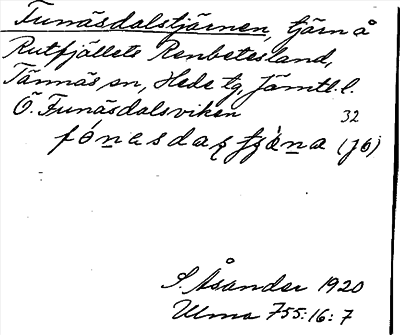 Funäsdalstjärnen, tjärn å
Rutfjällets Renbetesland,
Tännäs sn, Hede tg, Jämtl. l.
Ö. Funäsdalsviken 32
fónasdaʂ tjæ̀na (jö)
S. Åsander 1920
Ulma 755:16:7